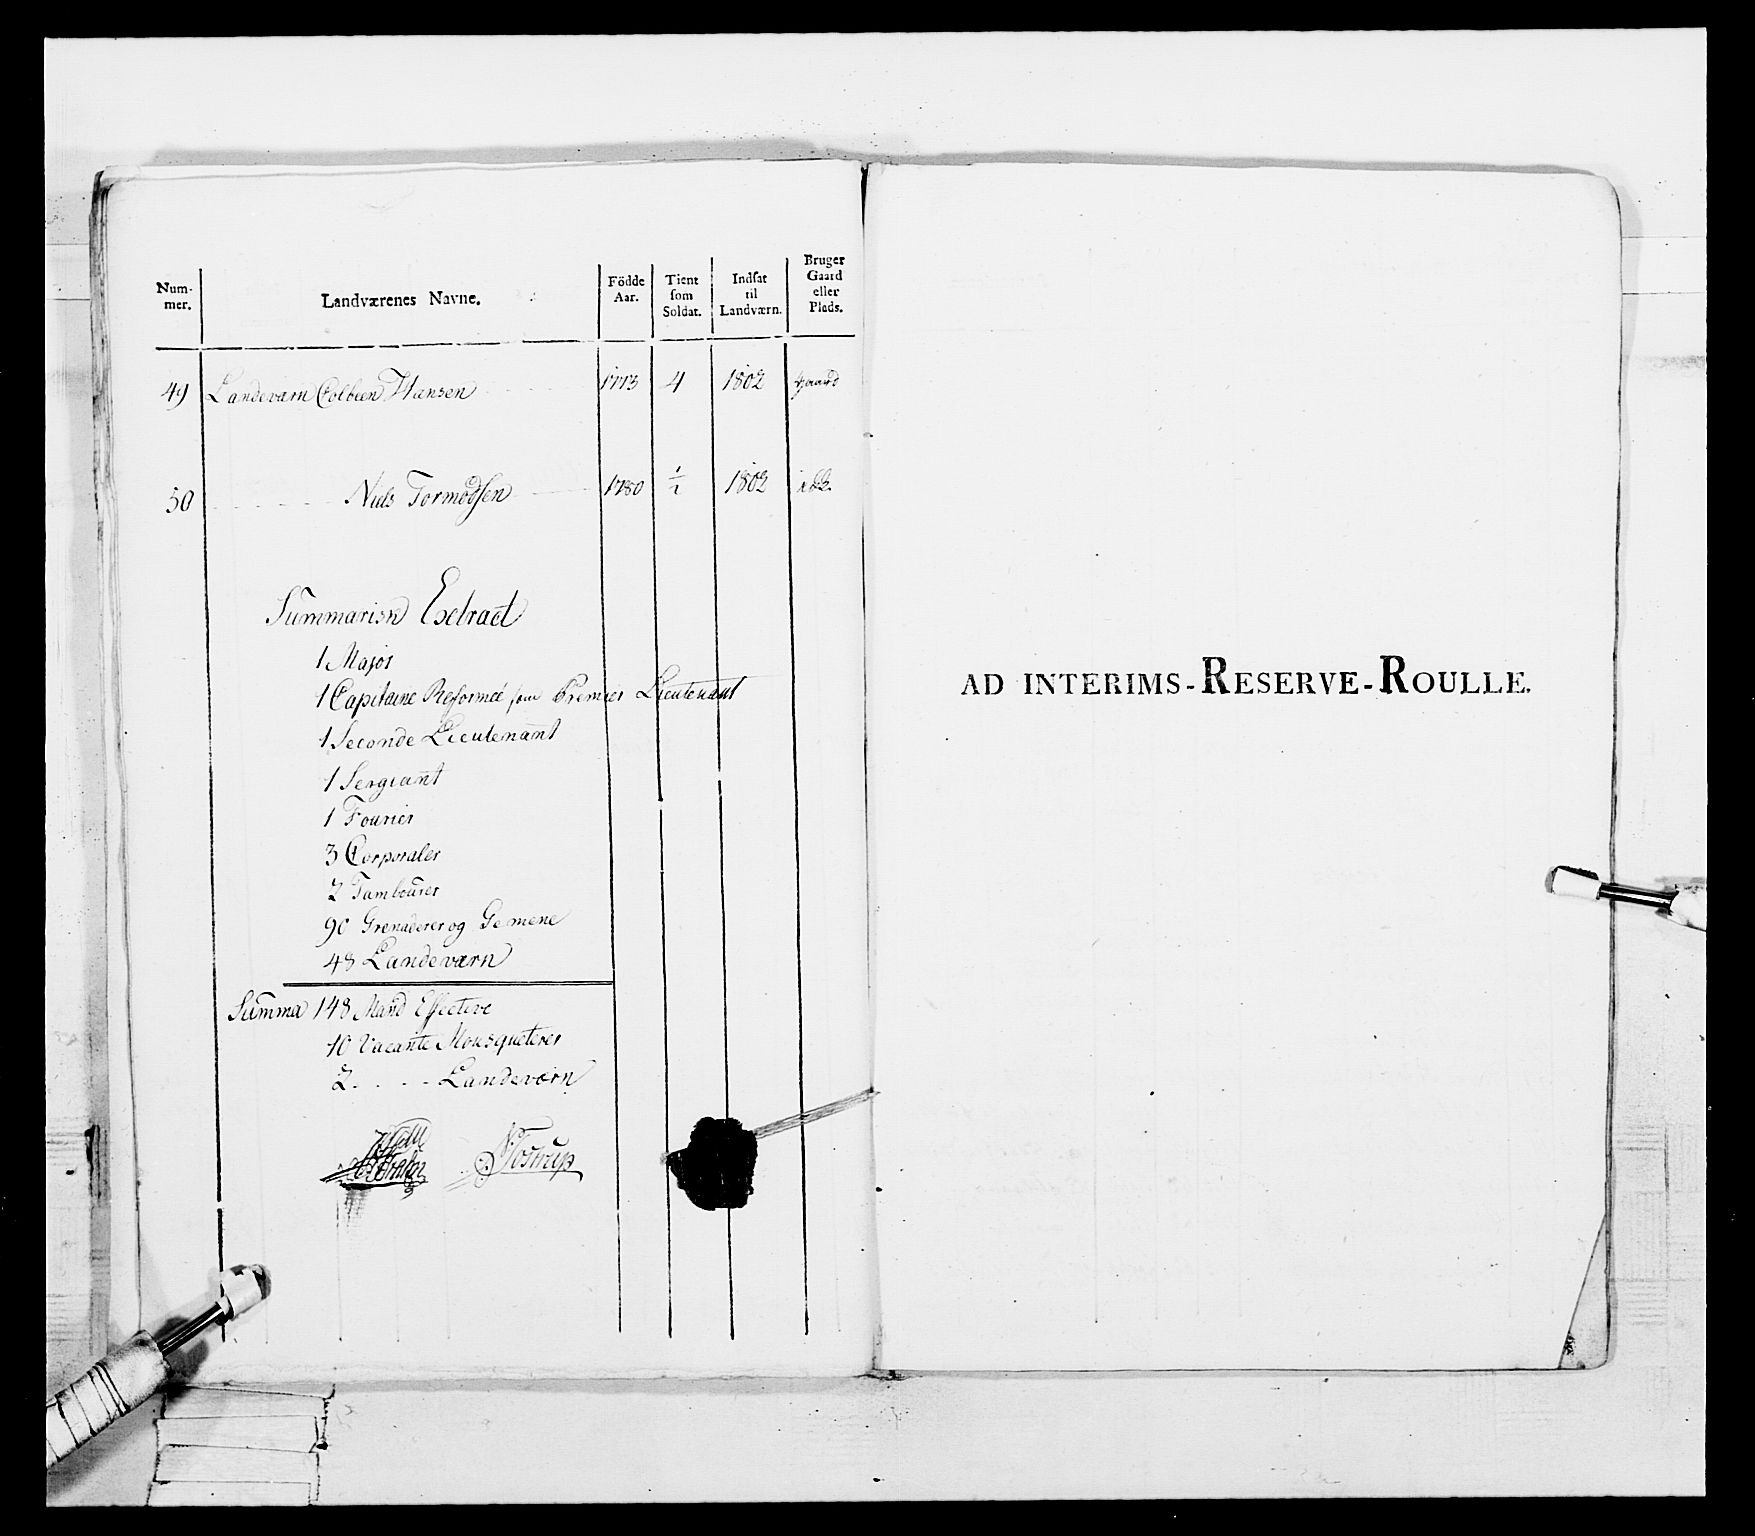 Num-
mer.
Landværenes Navne.
Födde
Aar.
Tient
som
Soldat.
Indsat
til
Landværn.
Bruger
Gaard
eller
Plads.
49 Landeværn Colbeen Hansen 1773 4 1802 gaard
50 Niels Tormodsen 1780 1802
Summarisk Extract
1 Major
1 Capitaine Reformeé som Premier Lieutenant
1 Seconde Lieutenant
1 Sergiant
1 Fourier
3 Corporaler
2 Tambourer
90 Grenaderer og Gemene
48 Landeværn
Summa 148 Mand Effective
10 Vacante Mousqueterer
2 . . . - Landeværn
N Tostrup
AD INTERIMS-RESERVE-ROULLE.